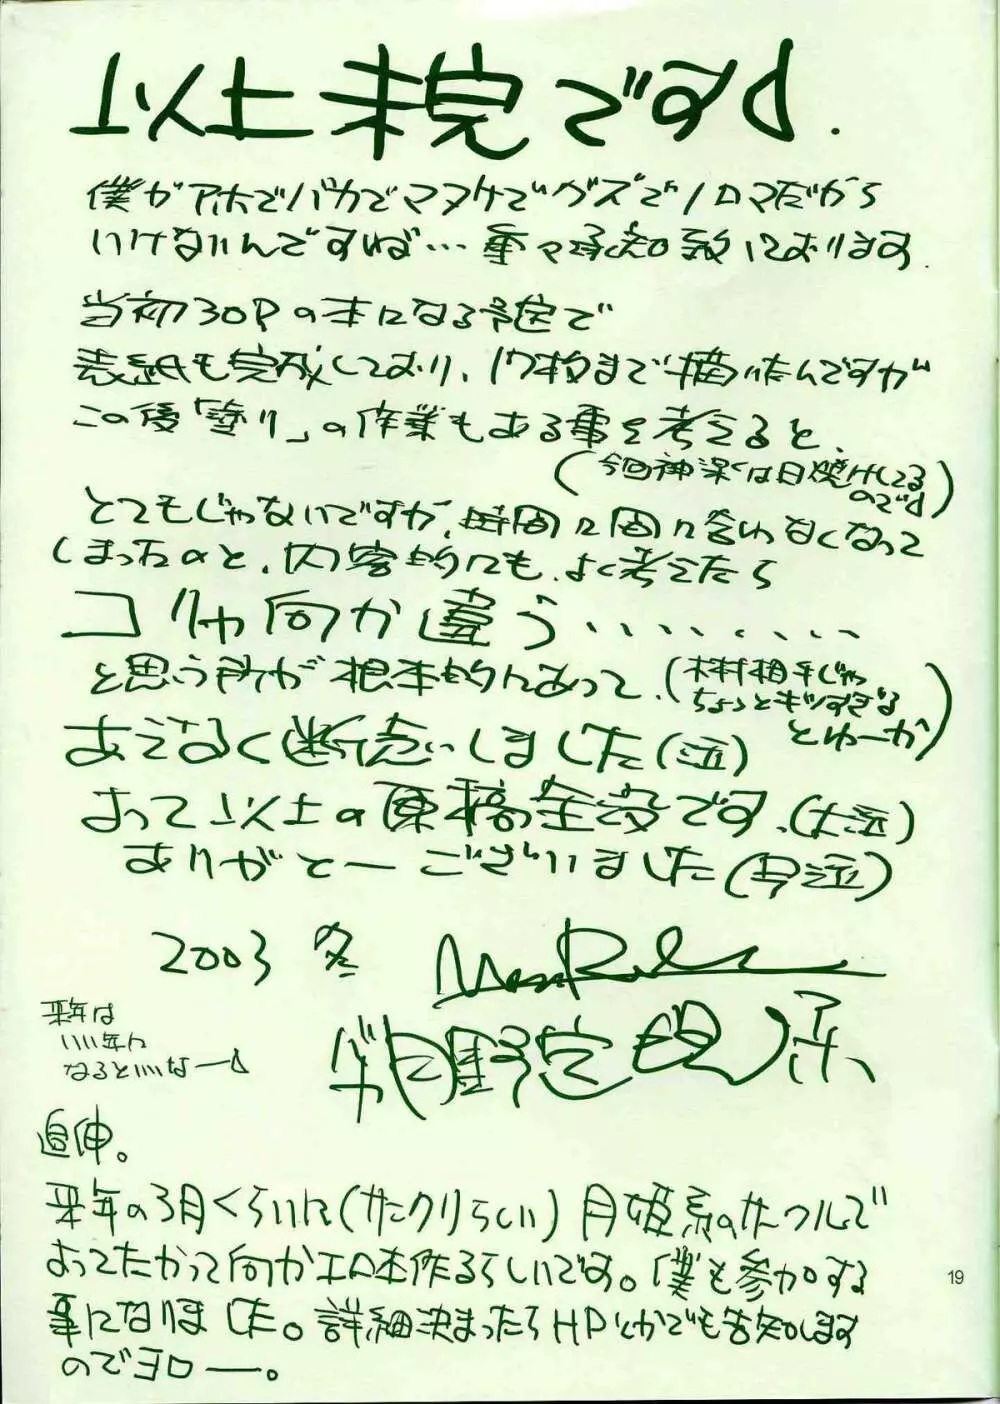 以上未完ですd.
僕がアホでバカでマヌケでグズでノロマだから
いけないんですねば…重々承知致しております.
当初30Pの本になる予定で
表紙も完成しており、17枚まで描いたんですが
この後「塗り」の作業もある事を考えると、
(今回神深くは日焼けしてる
のでd)
とてもじゃないですが、時間に間に合わなくなって
しまったのと、内容的にも、よく考えたら
コリャ何か違う.........
と思う所が根本的にあって、
(木村相手じゃ
ちょっとギツすぎる
とゆーか)
あえなく断念しました(泣)
よって以上の原稿全没です、(大泣)
ありがとーございました(号泣)
2003 冬
来年は
いい年に
なるといいなーd
追伸。
来年の3月くらいに(サンクリらしい)月姫系のサークルで
よってたかって何かエロ本作るらしいです。僕も参加する
事になりました。詳細決まったらHPとかでも告知します
のでヨロー。
19